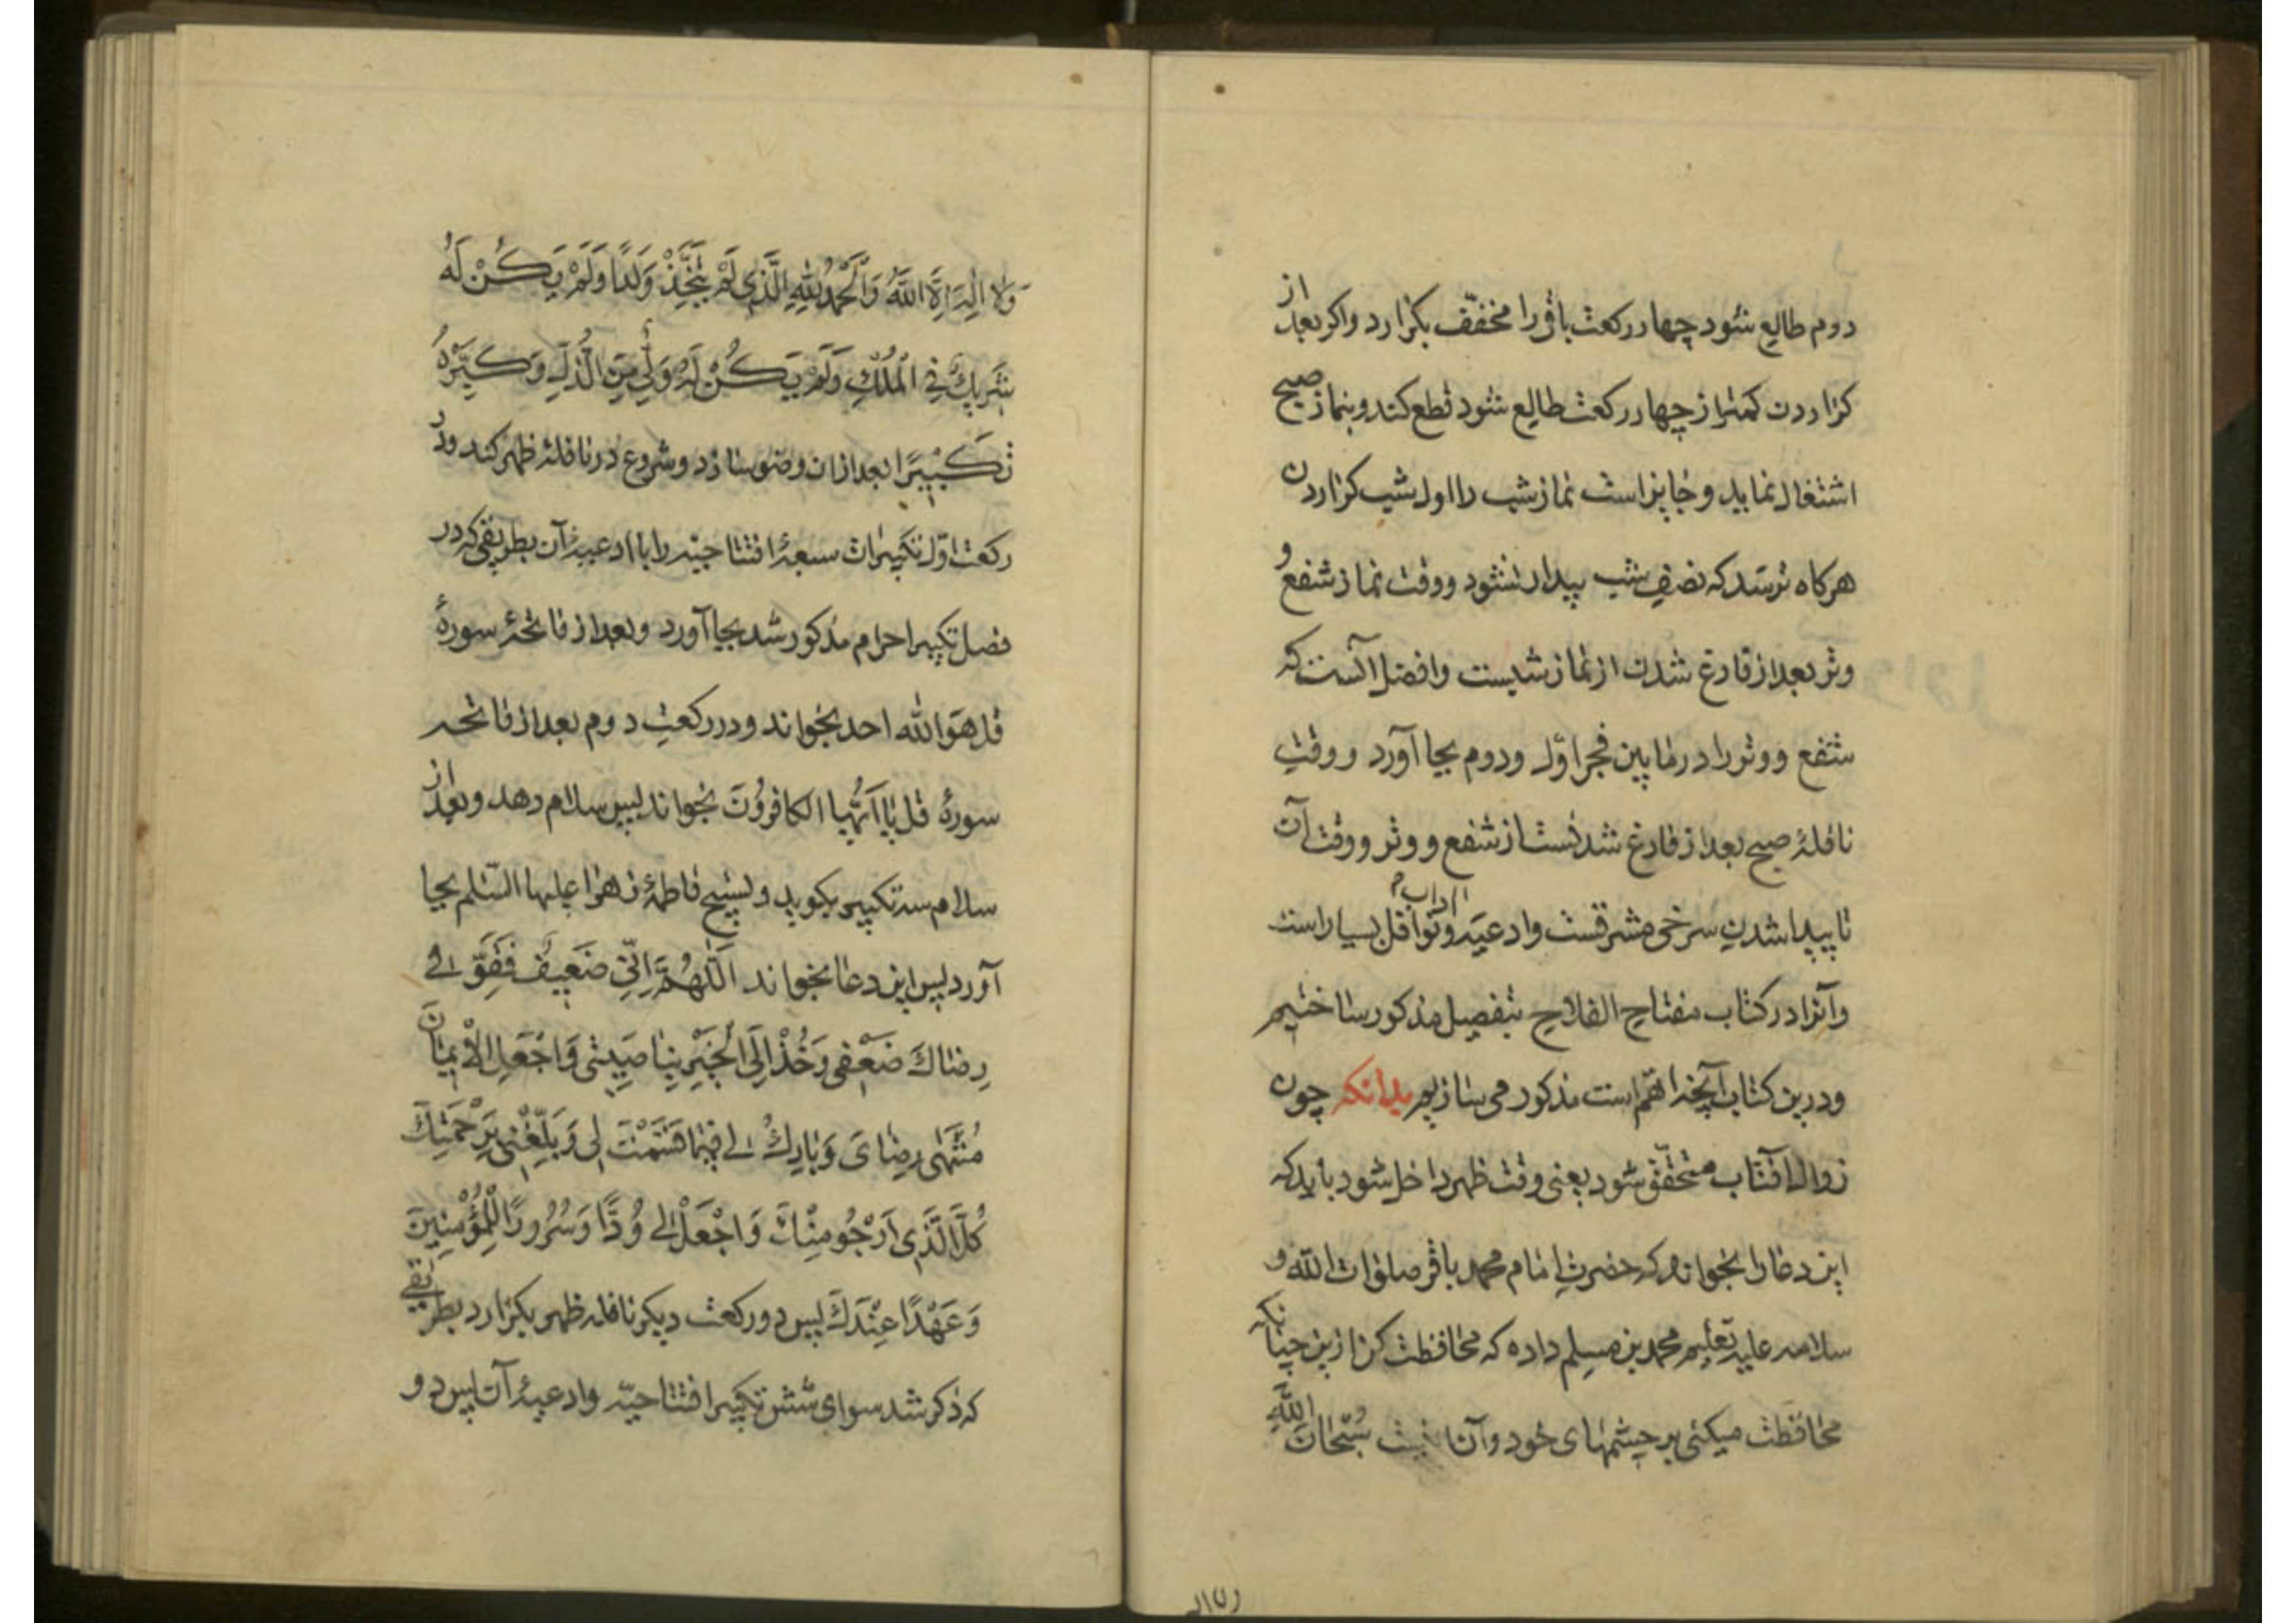 دوم طالع شود چهار ركعت باقی را مخفّف بكزارد واكر بعد از
كزاردن كمتر از چهار ركعت طالع شود قطع كند و بنماز صبح
اشتغال نمايد و جايز است نماز شب را اول شب كزاردن
هركاه ترسد كه نصف شب بيدار نشود ووقت نماز شفع و
وتر بعد از فارغ شدن از نماز شبست وافضل آنست كه
شفع ووتر را در مابين فجر اوّل ودوم بجا آورد ووقت
نافلهٔ صبح بعد از فارغ شدنست از شفع ووتر ووقت آن
تا پيدا شدن سرخی مشرقست وادعيه وآداب نوافل بسيار است
وآنرا در كتاب مفتاح الفلاح بتفصيل مذكور ساختيم
ودرين كتاب آنچه اهمّ است مذكور می سازيم بدانكه چون
زوال آفتاب متحقّق شود يعنی وقت ظهر داخل شود بايد كه
اين دعا را بخواند كه حضرت امام محمد باقر صلوات الله و
سلامه عليه تعليم محمد بن مسلم داده كه محافظت كن ازين چنانكه
محافظت ميكنی بر چشمهای خود وآن اينست سُبْحانَ اللهِ
وَلا اِلهَ اِلَّا اللَّهُ وَالْحَمْدُ لِلّهِ الَّذِی لَمْ يَتَّخِذْ وَلَدًا وَلَمْ يَكُنْ لَهُ
شَرِيكٌ فِی الْمُلْكِ وَلَمْ يَكُنْ لَهُ وَلِیٌّ مِنَ الذُّلِّ وَكَبِّرْهُ
تَكْبِيرًا بعد ازان وضو سازد وشروع در نافلهٔ ظهر كند ودر
ركعت اوّل تكبيرات سبعهٔ افتتاحيّه را با ادعيهٔ آن بطريقی كه در
فصل تكبير احرام مذكور شد بجا آورد وبعد از فاتحهٔ سورهٔ
قل هوَ الله احد بخواند ودر ركعت دوم بعد از فاتحه
سورهٔ قل يا اَيُّها الكافرُونَ بخواند پس سلام دهد وبعد از
سلام سه تكبير بكويد وتسبيح فاطمهٔ زهرا عليها السّلم بجا
آورد پس اين دعا بخواند اَللّهُمَّ اِنّی ضَعِيفٌ فَقَوِّ فی
رِضاكَ ضَعْفی وَخُذْ اِلَی الْخَيْرِ بِناصِيَتی وَاجْعَلِ الْاِيمانَ
مُنْتَهی رِضایَ وَبارِكْ لی فيما قَسَمْتَ لی وَبَلِّغْنی بِرَحْمَتِكَ
كُلَّ الَّذی اَرْجُو مِنْكَ وَاجْعَلْ لی وُدًّا وَسُرُورًا لِلْمُؤْمِنينَ
وَعَهْدًا عِنْدَكَ پس دو ركعت ديكر نافله ظهر بكزارد بطريقی
كه ذكر شد سوای شش تكبير افتتاحيّه وادعيهٔ آن پس دو